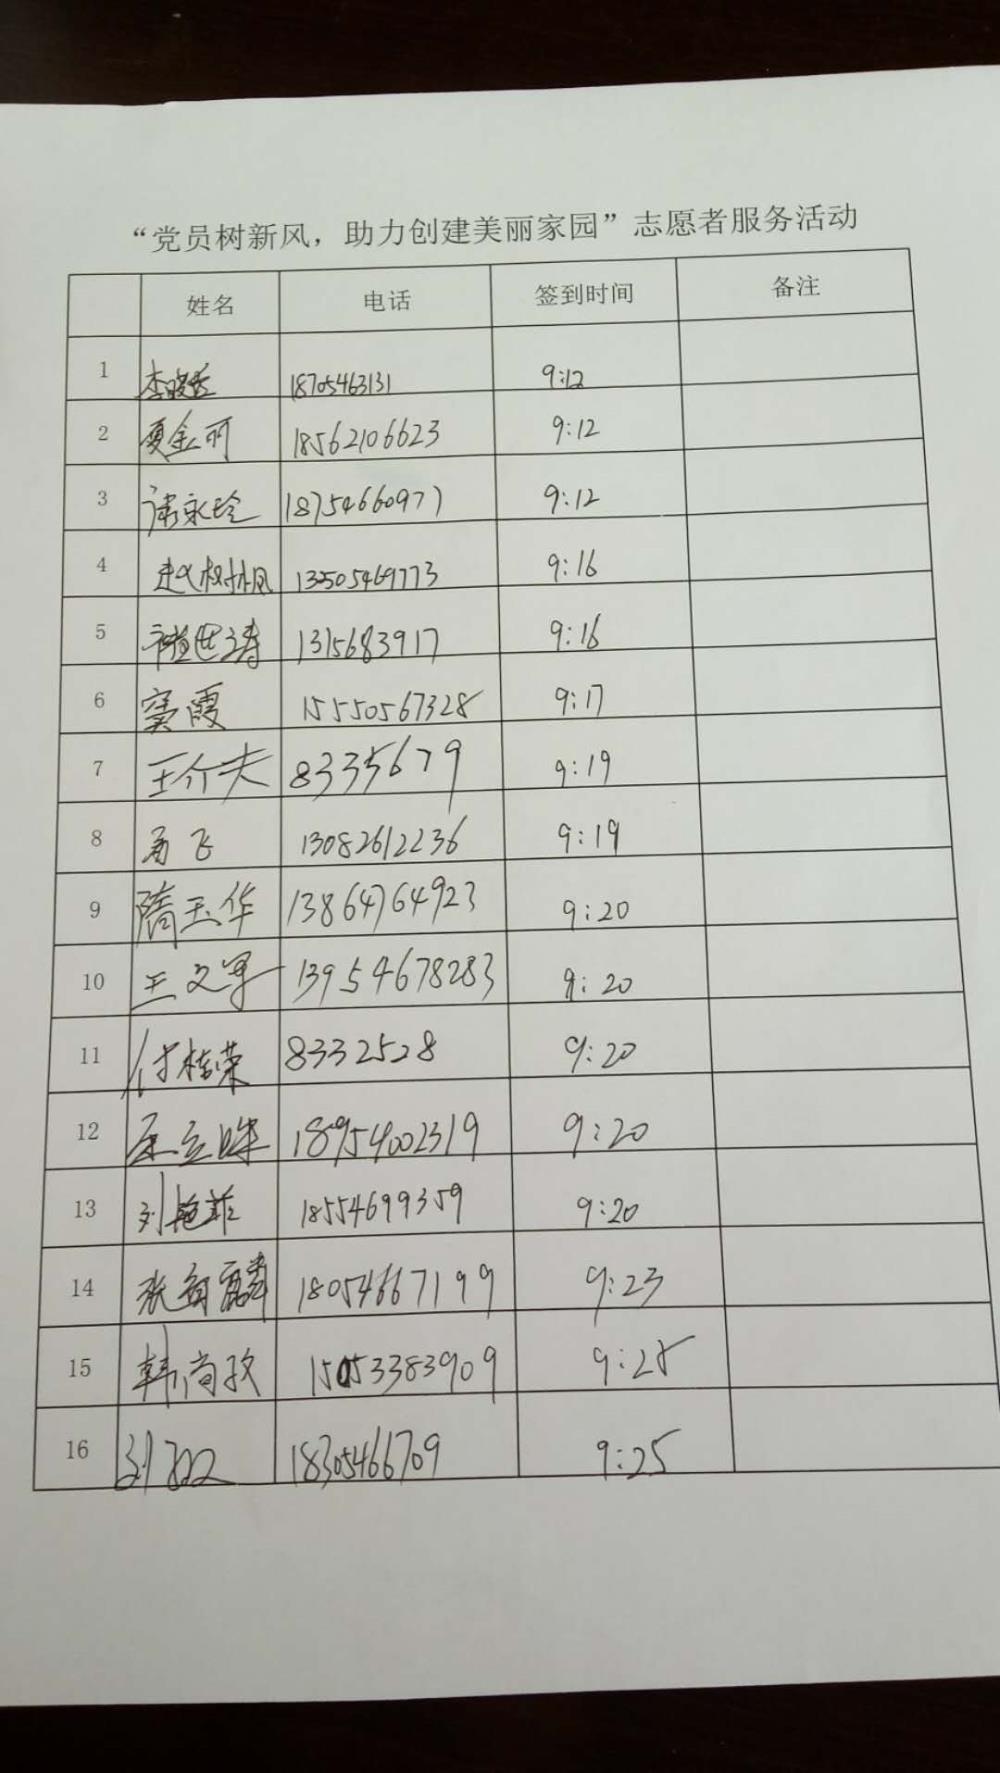 “党员树新风，助力创建美丽家园”志愿者服务活动
姓名 电话 签到时间 备注
1 18705463131 9:12
2 夏金丽 18562106623 9:12
3 诸永玲 18754660977 9:12
4 赵树枫 13505469773 9:16
5 世涛 1315683917 9:16
6 窦霞 15550567328 9:17
7 王介夫 8335679 9:19
8 飞 13082612236 9:19
9 隋玉华 13864764923 9:20
10 王文军 13954678283 9:20
11 付桂荣 8332528 9:20
12 18954002319 9:20
13 刘艳菲 18554699359 9:20
14 张 麟 18054667199 9:23
15 韩尚孜 15053383909 9:25
16 刘 18305466709 9:25